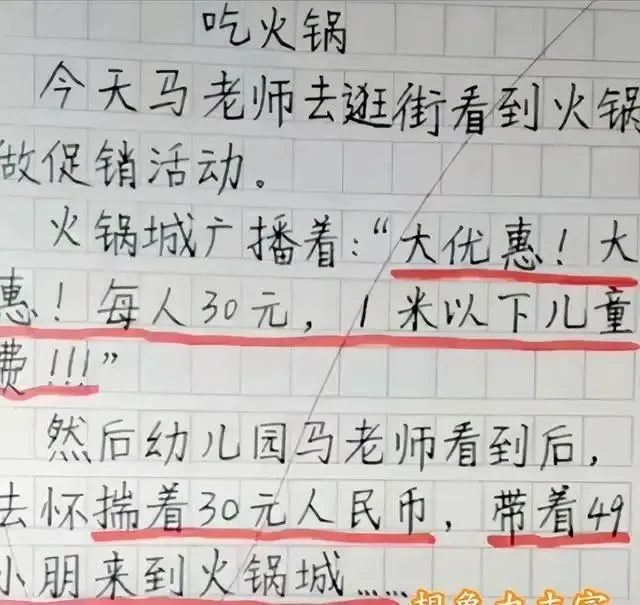 吃火锅
今天马老师去逛街看到火锅
做促销活动。
火锅城广播着：“大优惠！大
惠！每人30元，1米以下儿童
费！！！”
然后幼儿园马老师看到后，
去怀揣着30元人民币，带着49
小朋来到火锅城……